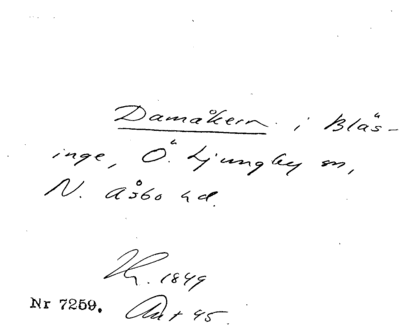 Damåkern i Bläs-
inge, Ö. Ljungby sn,
N. Åsbo hd.
1849
Nr 7259. Ant 45.